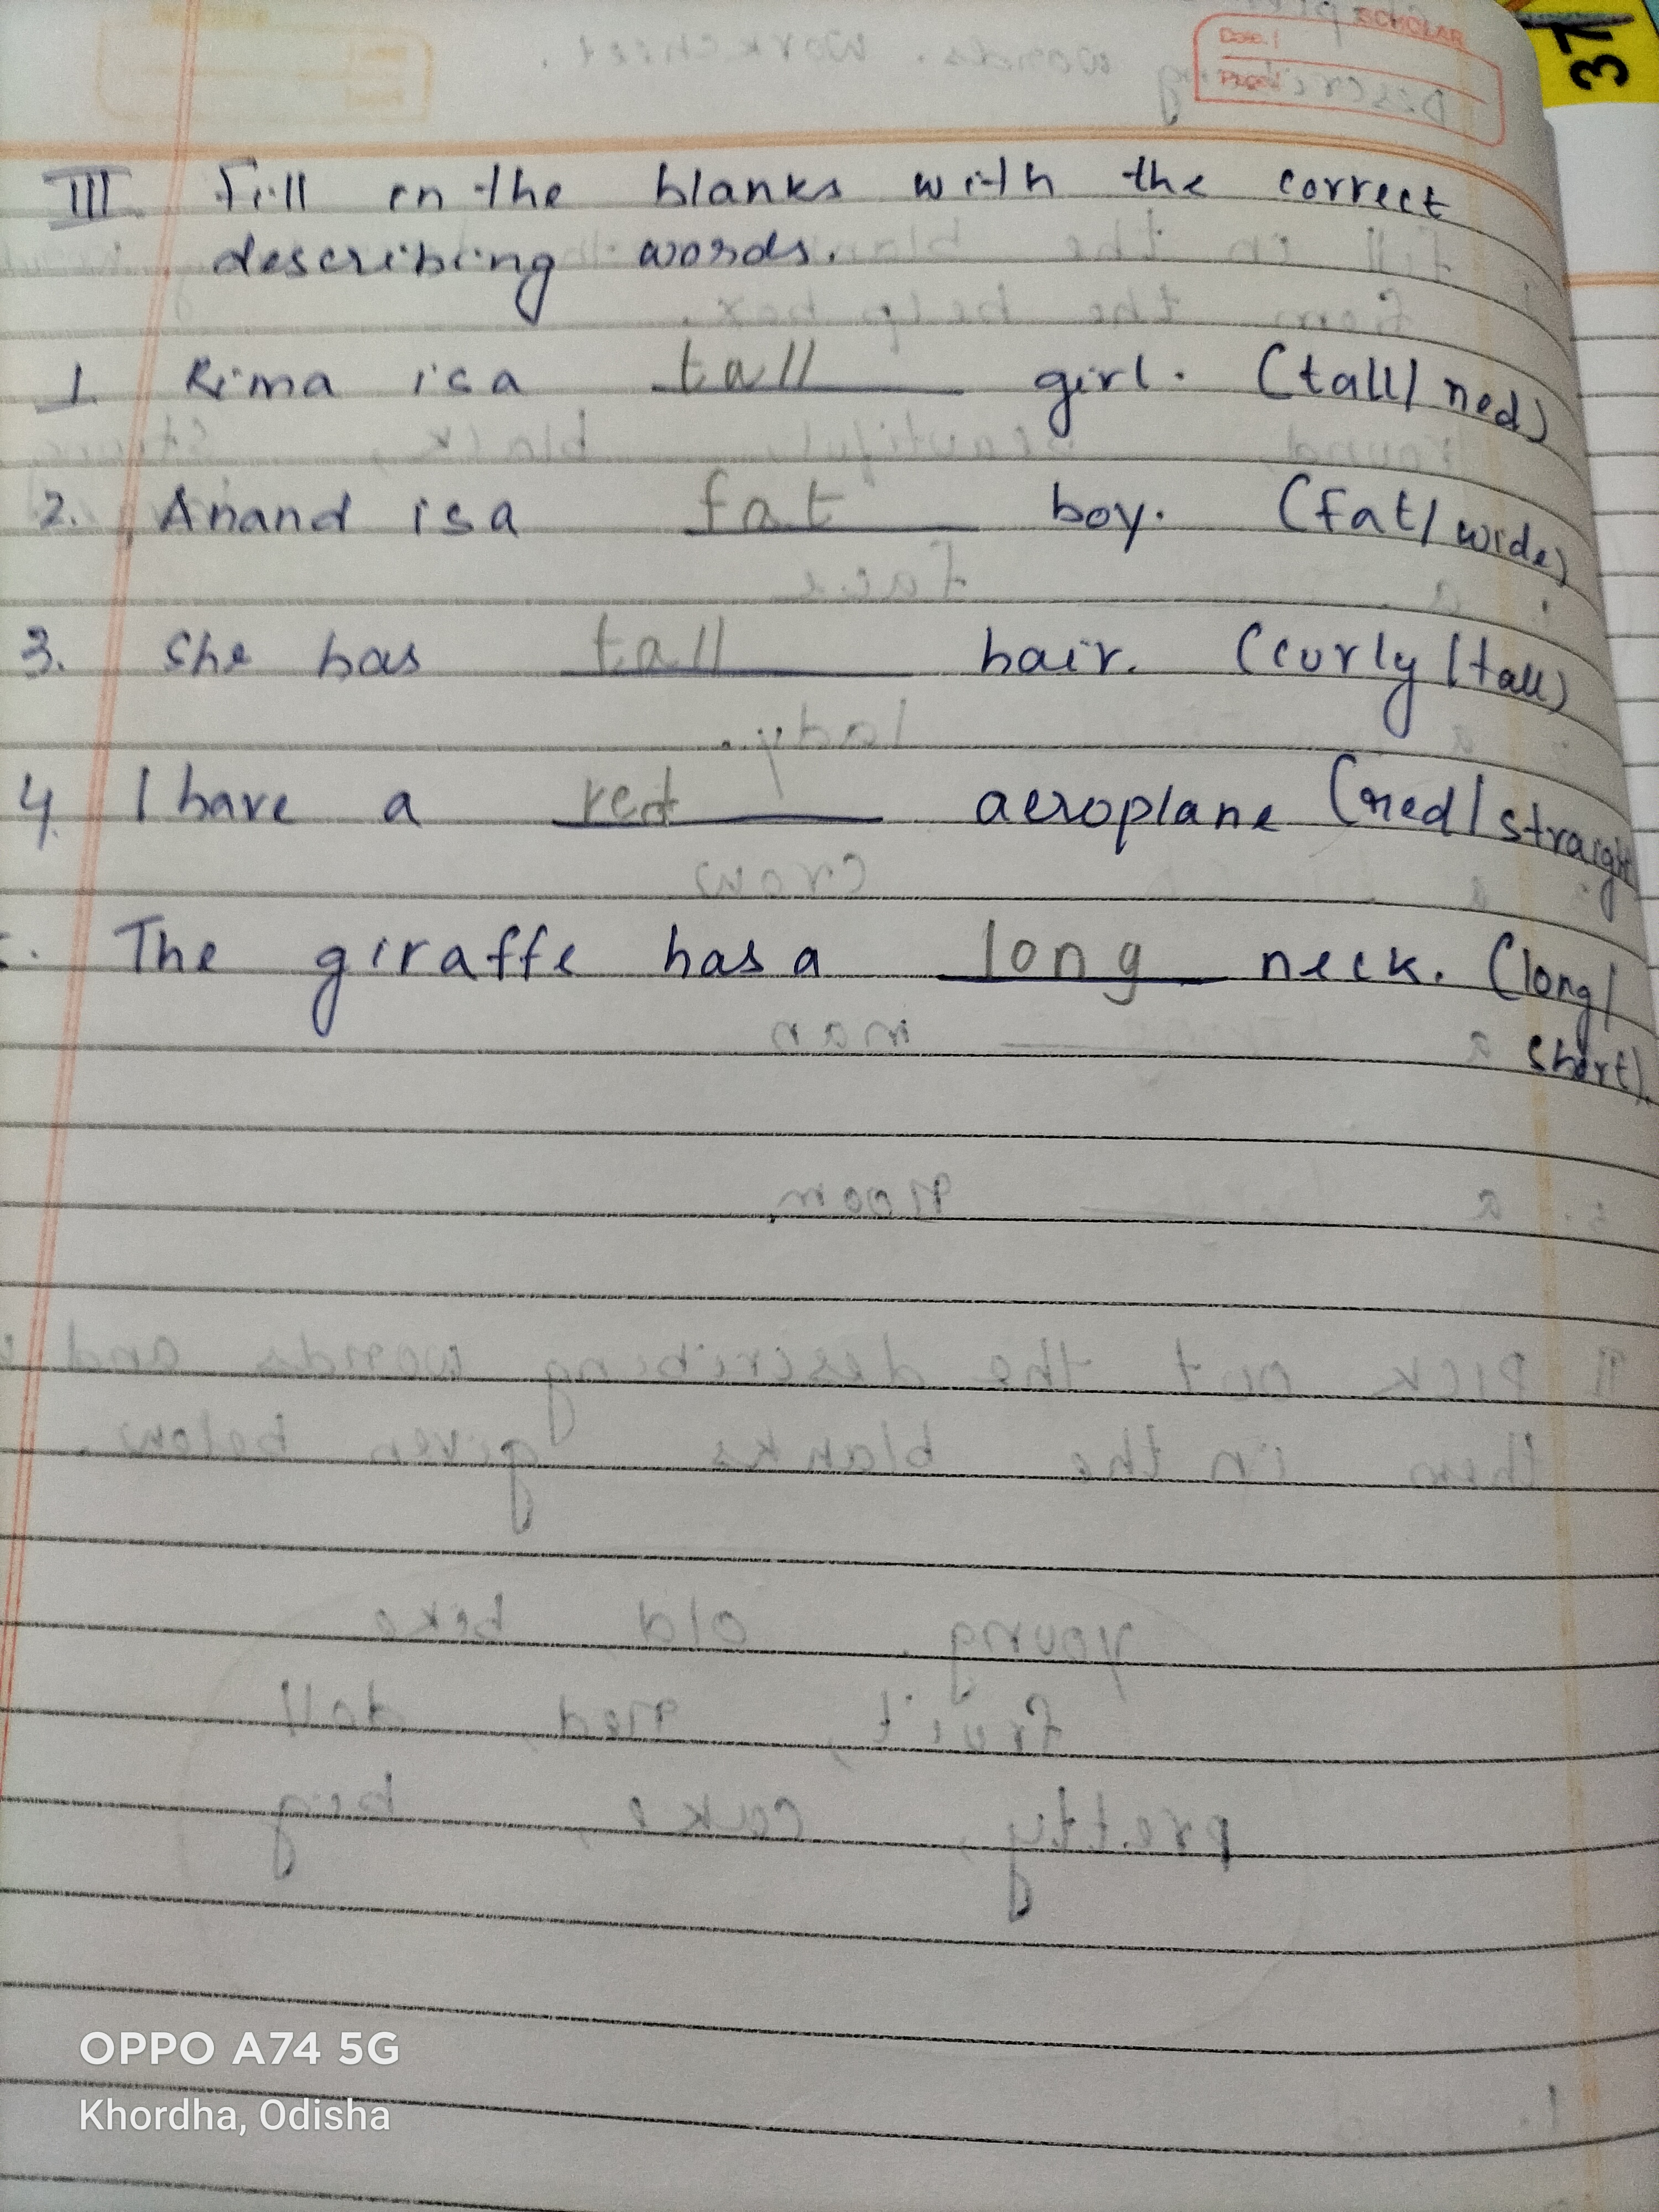 SCHOLAR
Date: /
Page:
37
III Fill in the blanks with the correct
describing words.
1. Rima is a tall girl. (tall/red)
2. Anand is a fat boy. (fat/wide)
3. She has tall hair. (curly/tall)
4. I have a red aeroplane (red/straight
. The giraffe has a long neck. (long/
short).
OPPO A74 5G
Khordha, Odisha